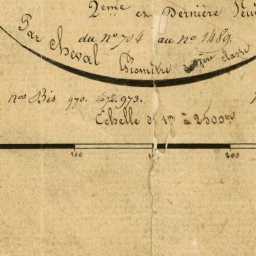 2eme et Dernière Feui
du no 704 au no 1489.
Par Cheval Géomètre classe
nos Bis 970. 973.
Echelle d 1m à 2500m
100 200